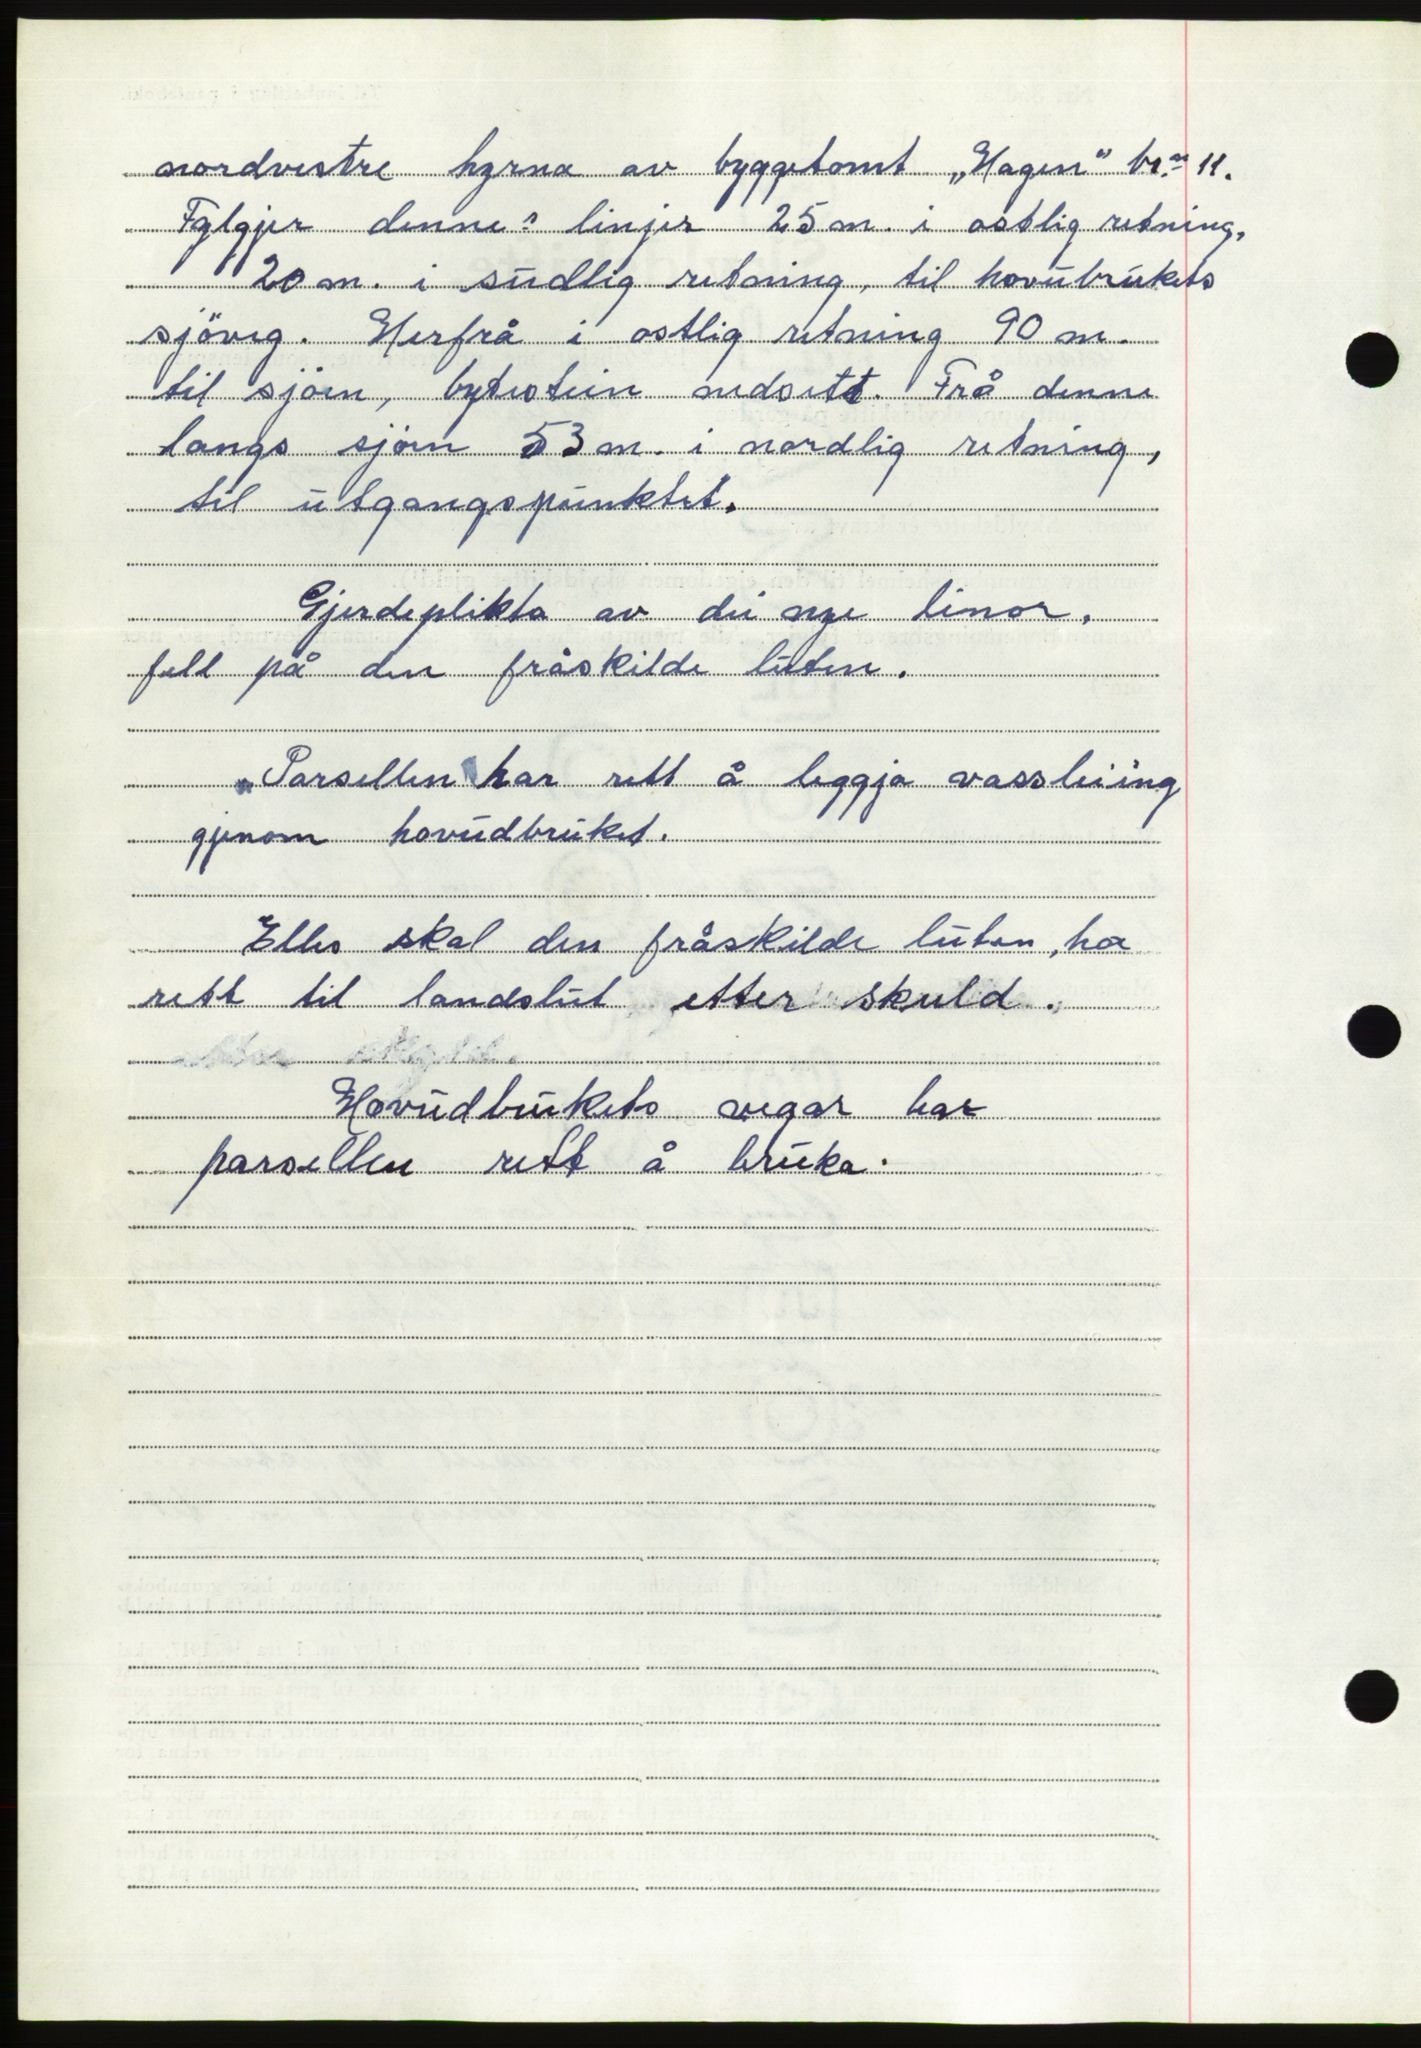 nordvestre hyrna av byggetomt „Hagen" br.n 11.
Fylgjer denne's linjer 25 m. i ostlig retning,
20 m. i sudlig retning, til hovubrukets
sjöveg. Herfrå i ostlig retning 90 m.
til sjöen, bytestein nedsett. Frå denne
langs sjöen 53 m. i nordlig retning,
til utgangspunktet.
Gjerdeplikta av dei nye linor,
fell på den fråskilde luten.
Parsellen har rett å leggja vassleiing
gjenom hovudbruket.
Elles skal den fråskilde luten, ha
rett til landslut etter skuld.
Hovudbrukets vegar har
parsellen rett å bruka.